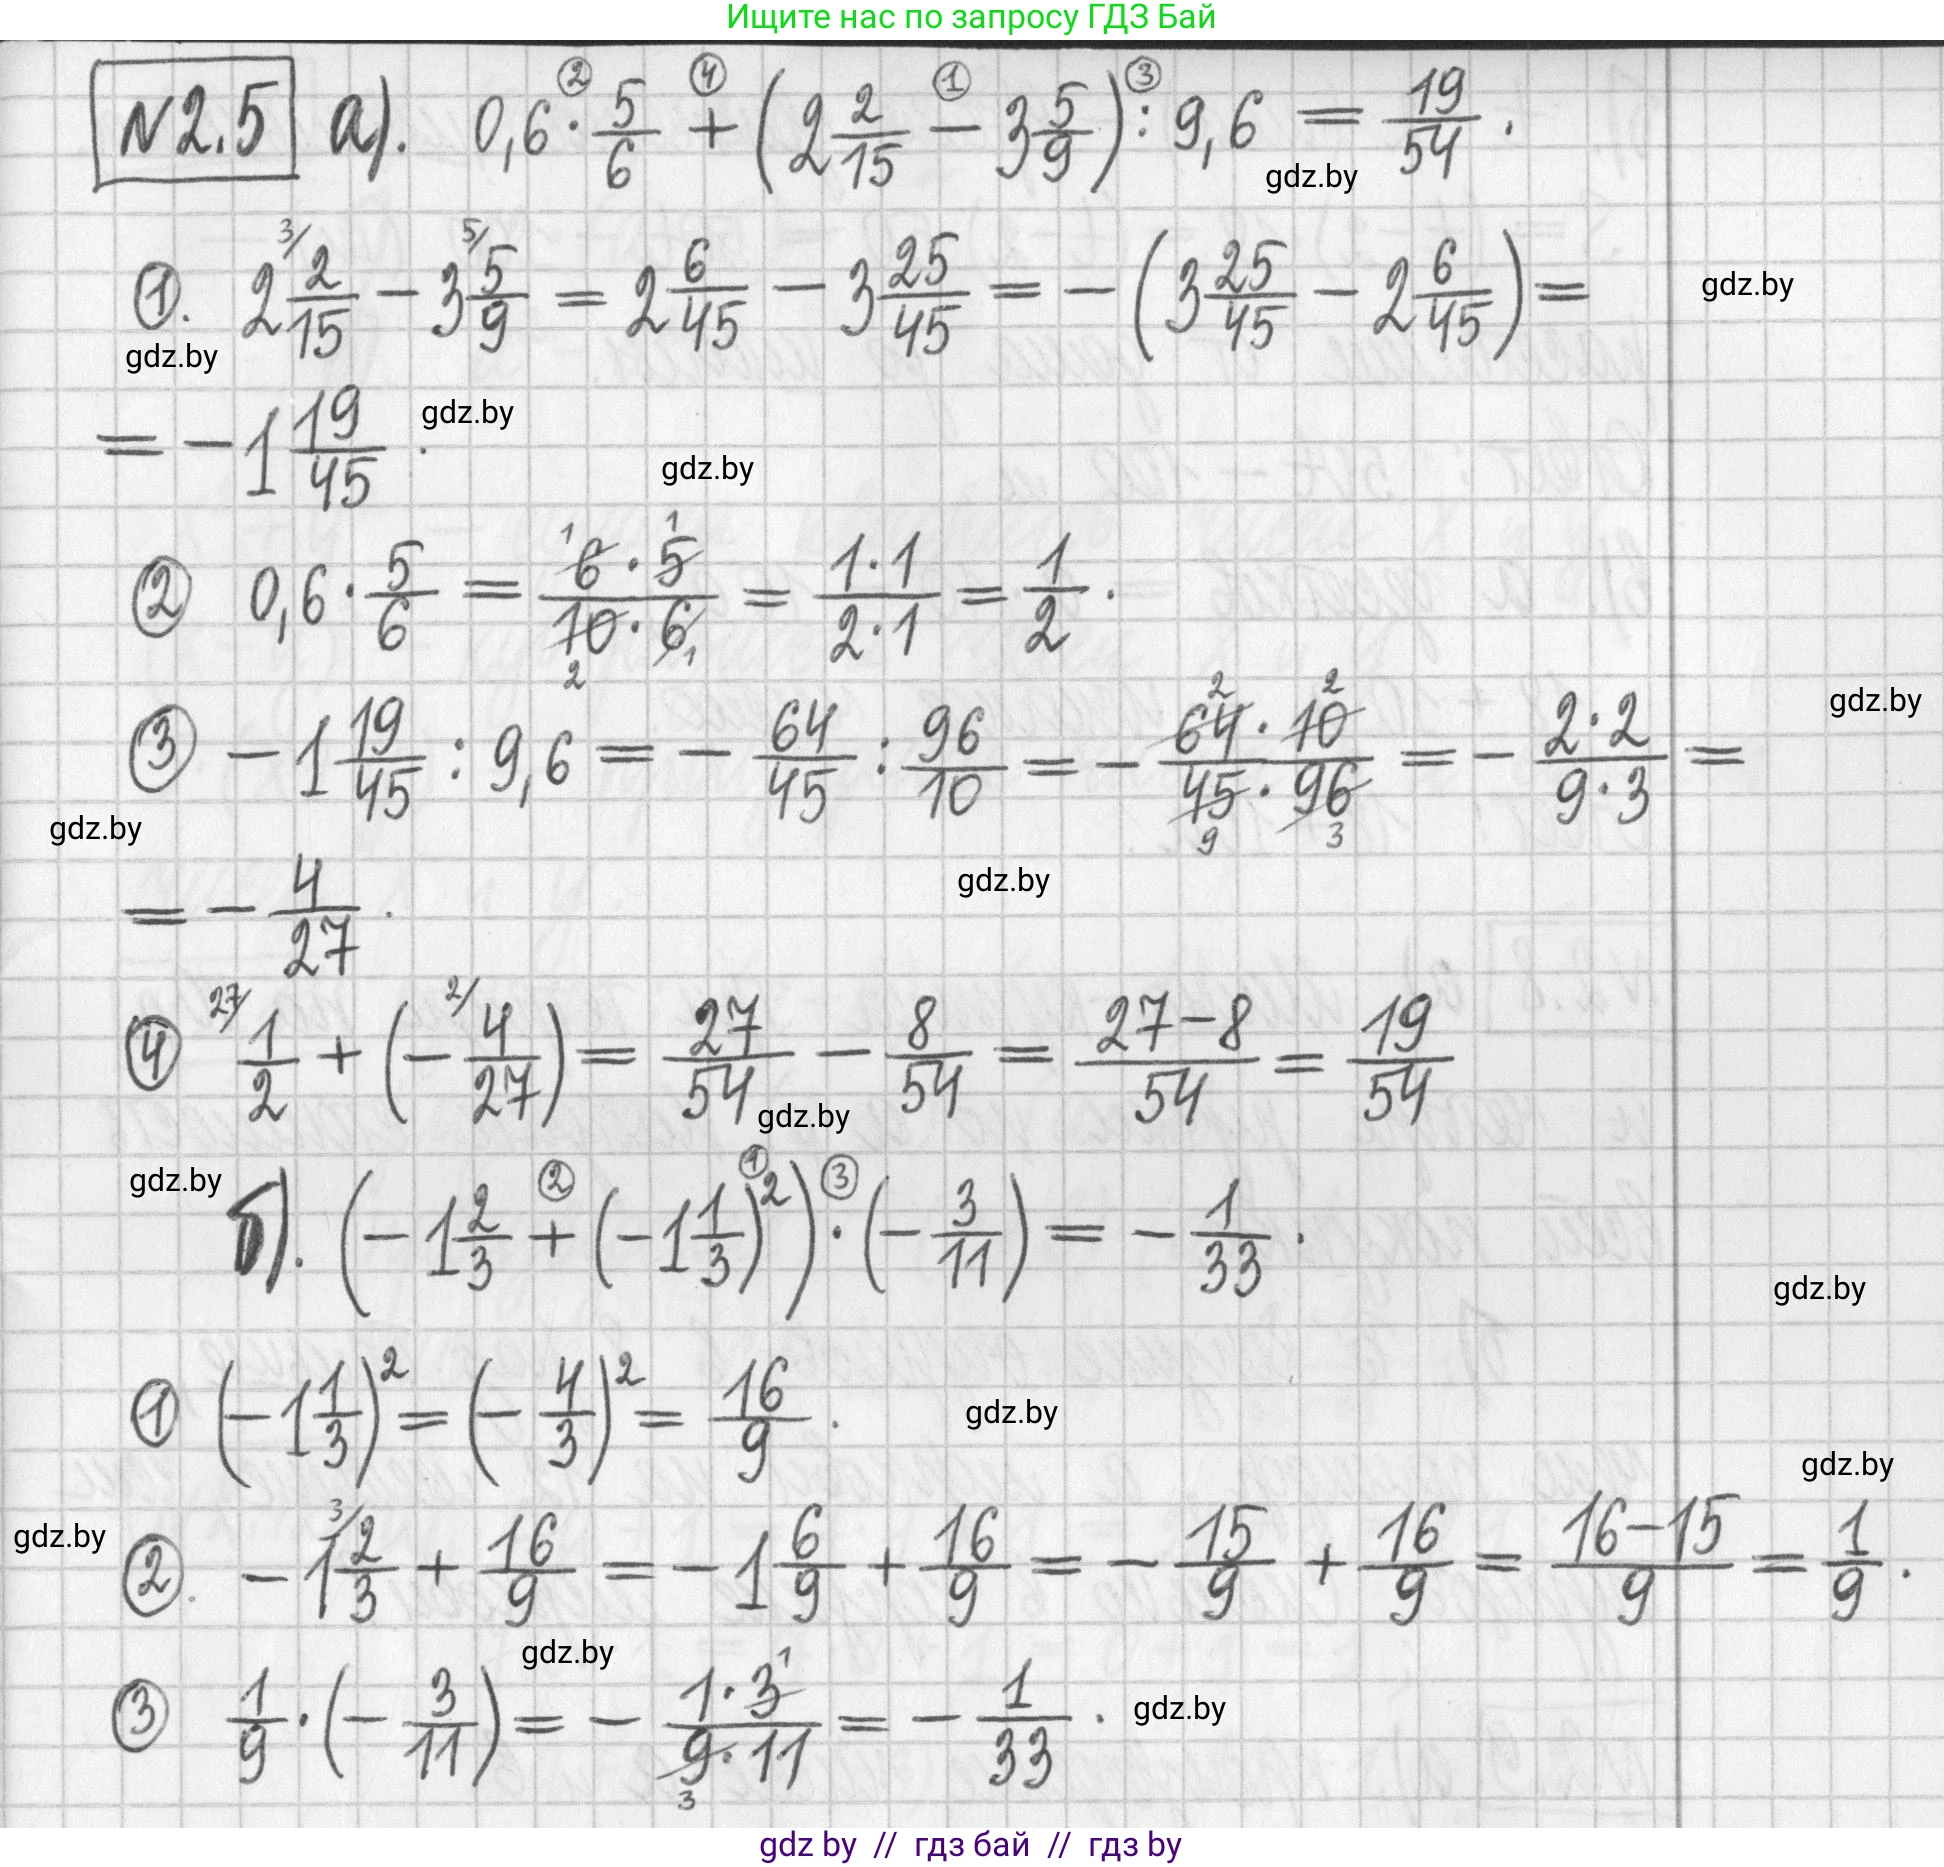 Ищите нас по запросу ГДЗ Бай
N2.5 а). 0,6 · 5/6 + (2 2/15 − 3 5/9) : 9,6 = 19/54.
② ④ ① ③
gdz.by
①. 2 2/15 − 3 5/9 = 2 6/45 − 3 25/45 = −(3 25/45 − 2 6/45) =
3/ 5/
gdz.by
gdz.by
= −1 19/45.
gdz.by
gdz.by
② 0,6 · 5/6 = 6·5/10·6 = 1·1/2·1 = 1/2.
1 1 2 1
③ −1 19/45 : 9,6 = −64/45 : 96/10 = −64·10/45·96 = −2·2/9·3 =
2 2 9 3
gdz.by
gdz.by
= −4/27.
gdz.by
④ 1/2 + (−4/27) = 27/54 − 8/54 = 27−8/54 = 19/54
27/ 2/
gdz.by
gdz.by
б). (−1 2/3 + (−1 1/3)²) · (−3/11) = −1/33.
② ① ③
gdz.by
① (−1 1/3)² = (−4/3)² = 16/9.
gdz.by
gdz.by
gdz.by
②. −1 2/3 + 16/9 = −1 6/9 + 16/9 = −15/9 + 16/9 = 16−15/9 = 1/9.
3/
gdz.by
③ 1/9 · (−3/11) = −1·3/9·11 = −1/33.
1 3
gdz.by
gdz by // гдз бай // гдз by